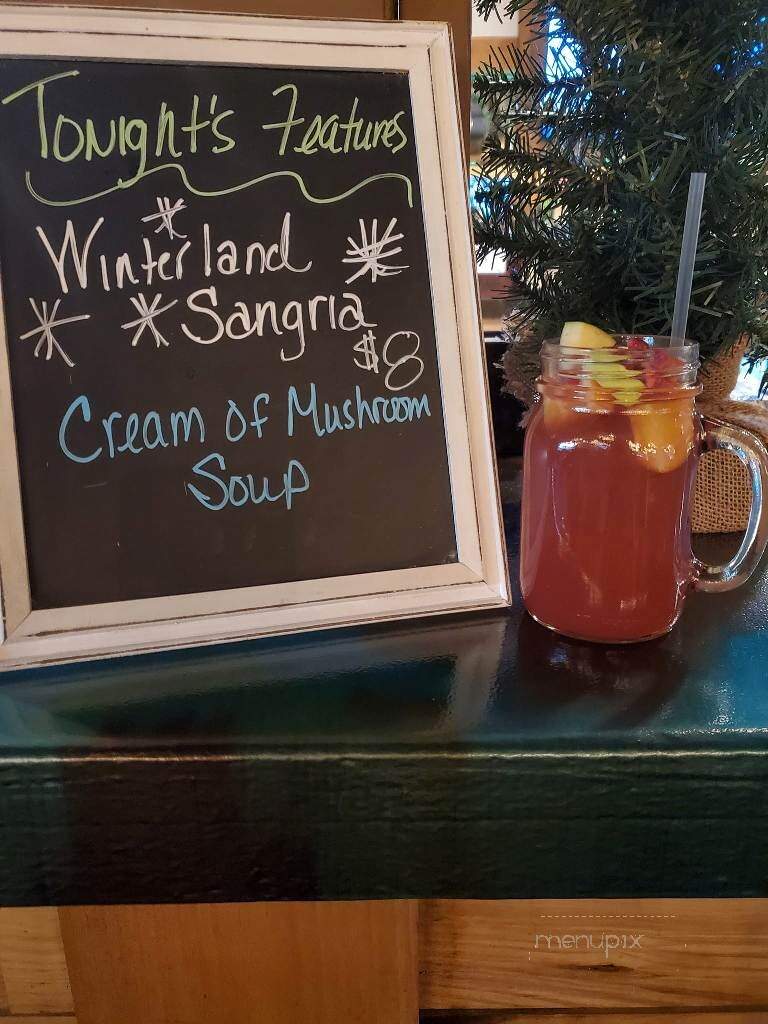 Tonight's Features
Winterland
Sangria
$8
Cream of Mushroom
Soup
menupix